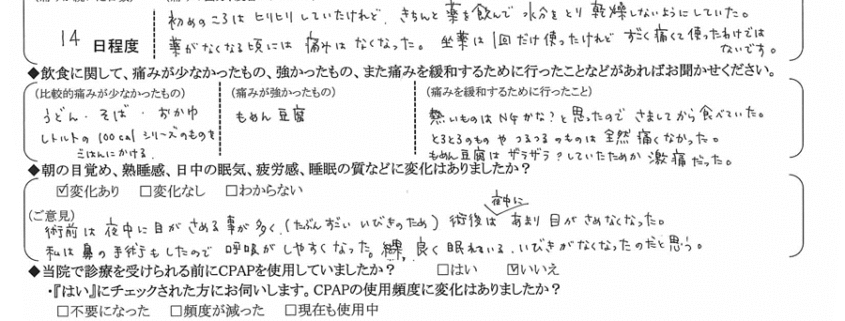 初めのころは ヒリヒリしていたけれど、きちんと薬を飲んで 水分をとり 乾燥しないようにしていた。
14 日程度
薬がなくなる頃には 痛みはなくなった。坐薬は1回だけ使ったけれど すごく痛くて使ったわけでは
ないです。
◆飲食に関して、痛みが少なかったもの、強かったもの、また痛みを緩和するために行ったことなどがあればお聞かせください。
(比較的痛みが少なかったもの)
うどん・そば・おかゆ
レトルトの100calシリーズのものを
ごはんにかける。
(痛みが強かったもの)
もめん豆腐
(痛みを緩和するために行ったこと)
熱いものはNGかな?と思ったので さましてから食べていた。
とろとろのものや つるつるのものは 全然 痛くなかった。
もめん豆腐は ザラザラ?していたためか 激痛だった。
◆朝の目覚め、熟睡感、日中の眠気、疲労感、睡眠の質などに変化はありましたか?
☑変化あり □変化なし □わからない
(ご意見)
術前は 夜中に目がさめる事が多く、(たぶんすごい いびきのため) 術後は 夜中に あまり目がさめなくなった。
私は鼻の手術もしたので 呼吸がしやすくなった。結果、良く眠れている。いびきがなくなったのだと思う。
◆当院で診療を受けられる前にCPAPを使用していましたか? □はい ☑いいえ
・『はい』にチェックされた方にお伺いします。CPAPの使用頻度に変化はありましたか?
□不要になった □頻度が減った □現在も使用中